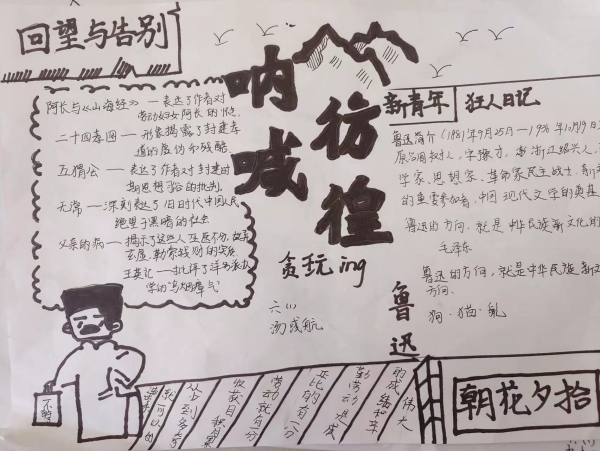 回望与告别
阿长与《山海经》—表达了作者对
劳动妇女阿长的怀念.
二十四孝图—形象揭露了封建孝
道的虚伪和残酷
五猖会—表达了作者对封建时
期思想
的批判.
无常—深刻表达了旧时代中国人民
绝望于黑暗的社会
父亲的病—揭示了这些人巫医不分,故弄
玄虚,勒索钱财的实质
—批评了洋务派办
学的"乌烟瘴气"
呐喊
彷徨
贪玩ing
六(1)
鲁迅
新青年
狂人日记
鲁迅简介(1881年9月25日—1936年10月19日
原名周树人,字豫才,浙江绍兴人,
学家、思想家、革命家民主战士,新
的重要参与者,中国现代文学的奠基
鲁迅的方向,就是中华民族新文化的
毛泽东
鲁迅的方向,就是中华民族新文
方向.
狗·猫·鼠
朝花夕拾
伟大
的成绩和辛
勤劳动是成
正比的有一分
劳动就有一分
收获日积月累
从少到多奇
迹就可以创
造出来